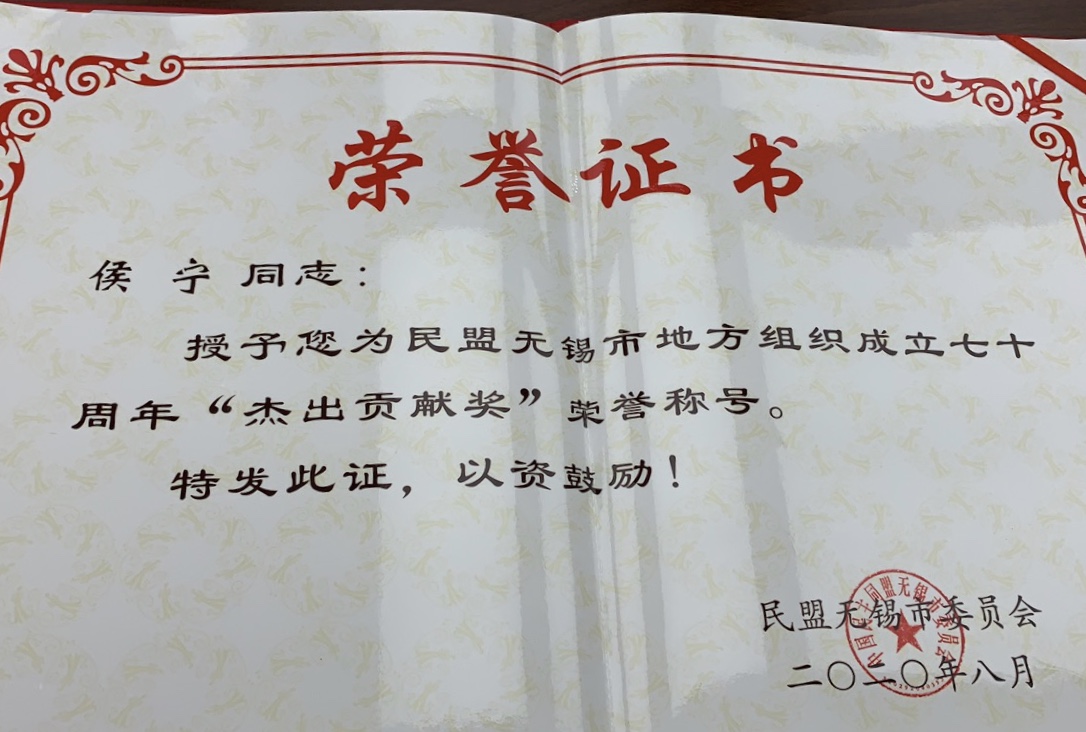 荣誉证书
侯 宁 同志：
授予您为民盟无锡市地方组织成立七十
周年“杰出贡献奖”荣誉称号。
特发此证，以资鼓励！
民盟无锡市委员会
二〇二〇年八月
中国民主同盟无锡市委员会